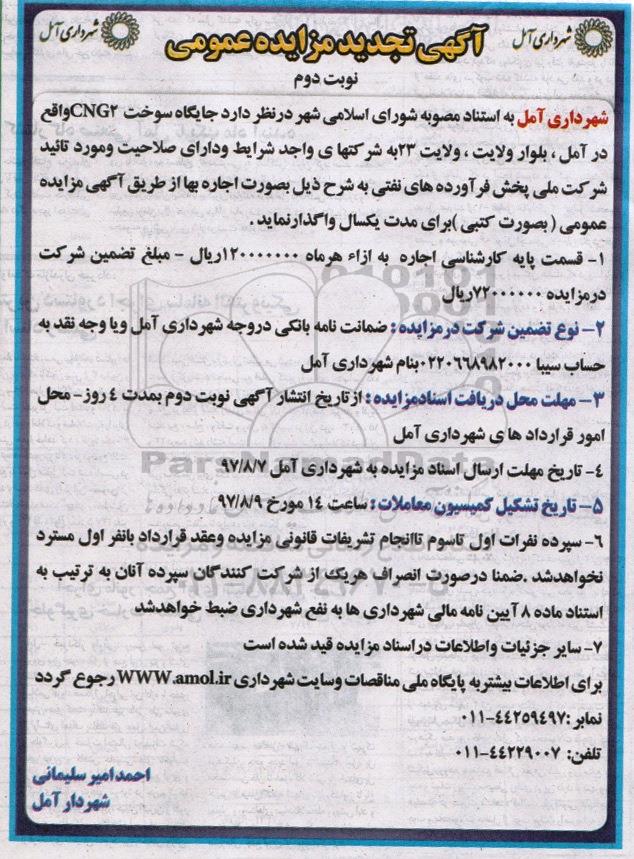 شهرداری آمل
آگهی تجدید مزایده عمومی
شهرداری آمل
نوبت دوم
شهرداری آمل به استناد مصوبه شورای اسلامی شهر درنظر دارد جایگاه سوخت CNG۲واقع
در آمل ، بلوار ولایت ، ولایت ۲۳به شرکتها ی واجد شرایط ودارای صلاحیت ومورد تائید
شرکت ملی پخش فرآورده های نفتی به شرح ذیل بصورت اجاره بها از طریق آگهی مزایده
عمومی ( بصورت کتبی )برای مدت یکسال واگذارنماید .
۱- قسمت پایه کارشناسی اجاره به ازاء هرماه ۱۲۰۰۰۰۰۰۰ریال - مبلغ تضمین شرکت
درمزایده ۷۲۰۰۰۰۰۰ریال
۲- نوع تضمین شرکت درمزایده : ضمانت نامه بانکی دروجه شهرداری آمل ویا وجه نقد به
حساب سیبا ۰۲۲۰۶۶۸۹۸۲۰۰۰بنام شهرداری آمل
۳- مهلت محل دریافت اسنادمزایده : ازتاریخ انتشار آگهی نوبت دوم بمدت ٤ روز- محل
امور قرارداد های شهرداری آمل
٤- تاریخ مهلت ارسال اسناد مزایده به شهرداری آمل ۹۷/۸/۷
۵- تاریخ تشکیل کمیسیون معاملات : ساعت ۱۴ مورخ ۹۷/۸/۹
۶- سپرده نفرات اول تاسوم تاانجام تشریفات قانونی مزایده وعقد قرارداد بانفر اول مسترد
نخواهدشد .ضمنا درصورت انصراف هریک از شرکت کنندگان سپرده آنان به ترتیب به
استناد ماده ۸ آیین نامه مالی شهرداری ها به نفع شهرداری ضبط خواهدشد
۷- سایر جزئیات واطلاعات دراسناد مزایده قید شده است
برای اطلاعات بیشتربه پایگاه ملی مناقصات وسایت شهرداری WWW.amol.ir رجوع گردد
نمابر :۴۴۲۵۹۴۹۷-۰۱۱
تلفن: ۴۴۲۲۹۰۰۷-۰۱۱
احمدامیر سلیمانی
شهردار آمل
ParsNamadData